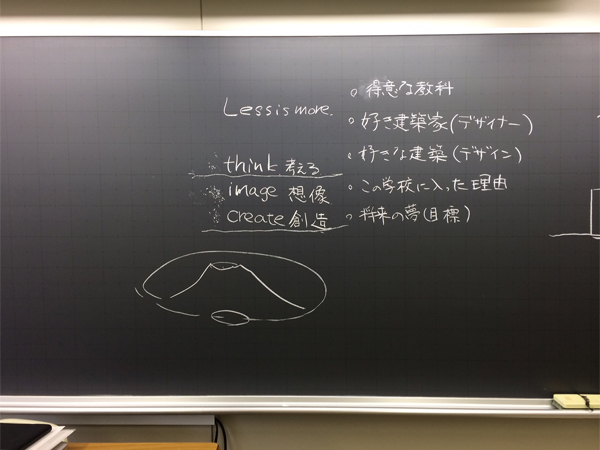 Less is more.
think 考える
image 想像
create 創造
○ 得意な教科
○ 好き建築家(デザイナー)
○ 好きな建築(デザイン)
○ この学校に入った理由
○ 将来の夢(目標)